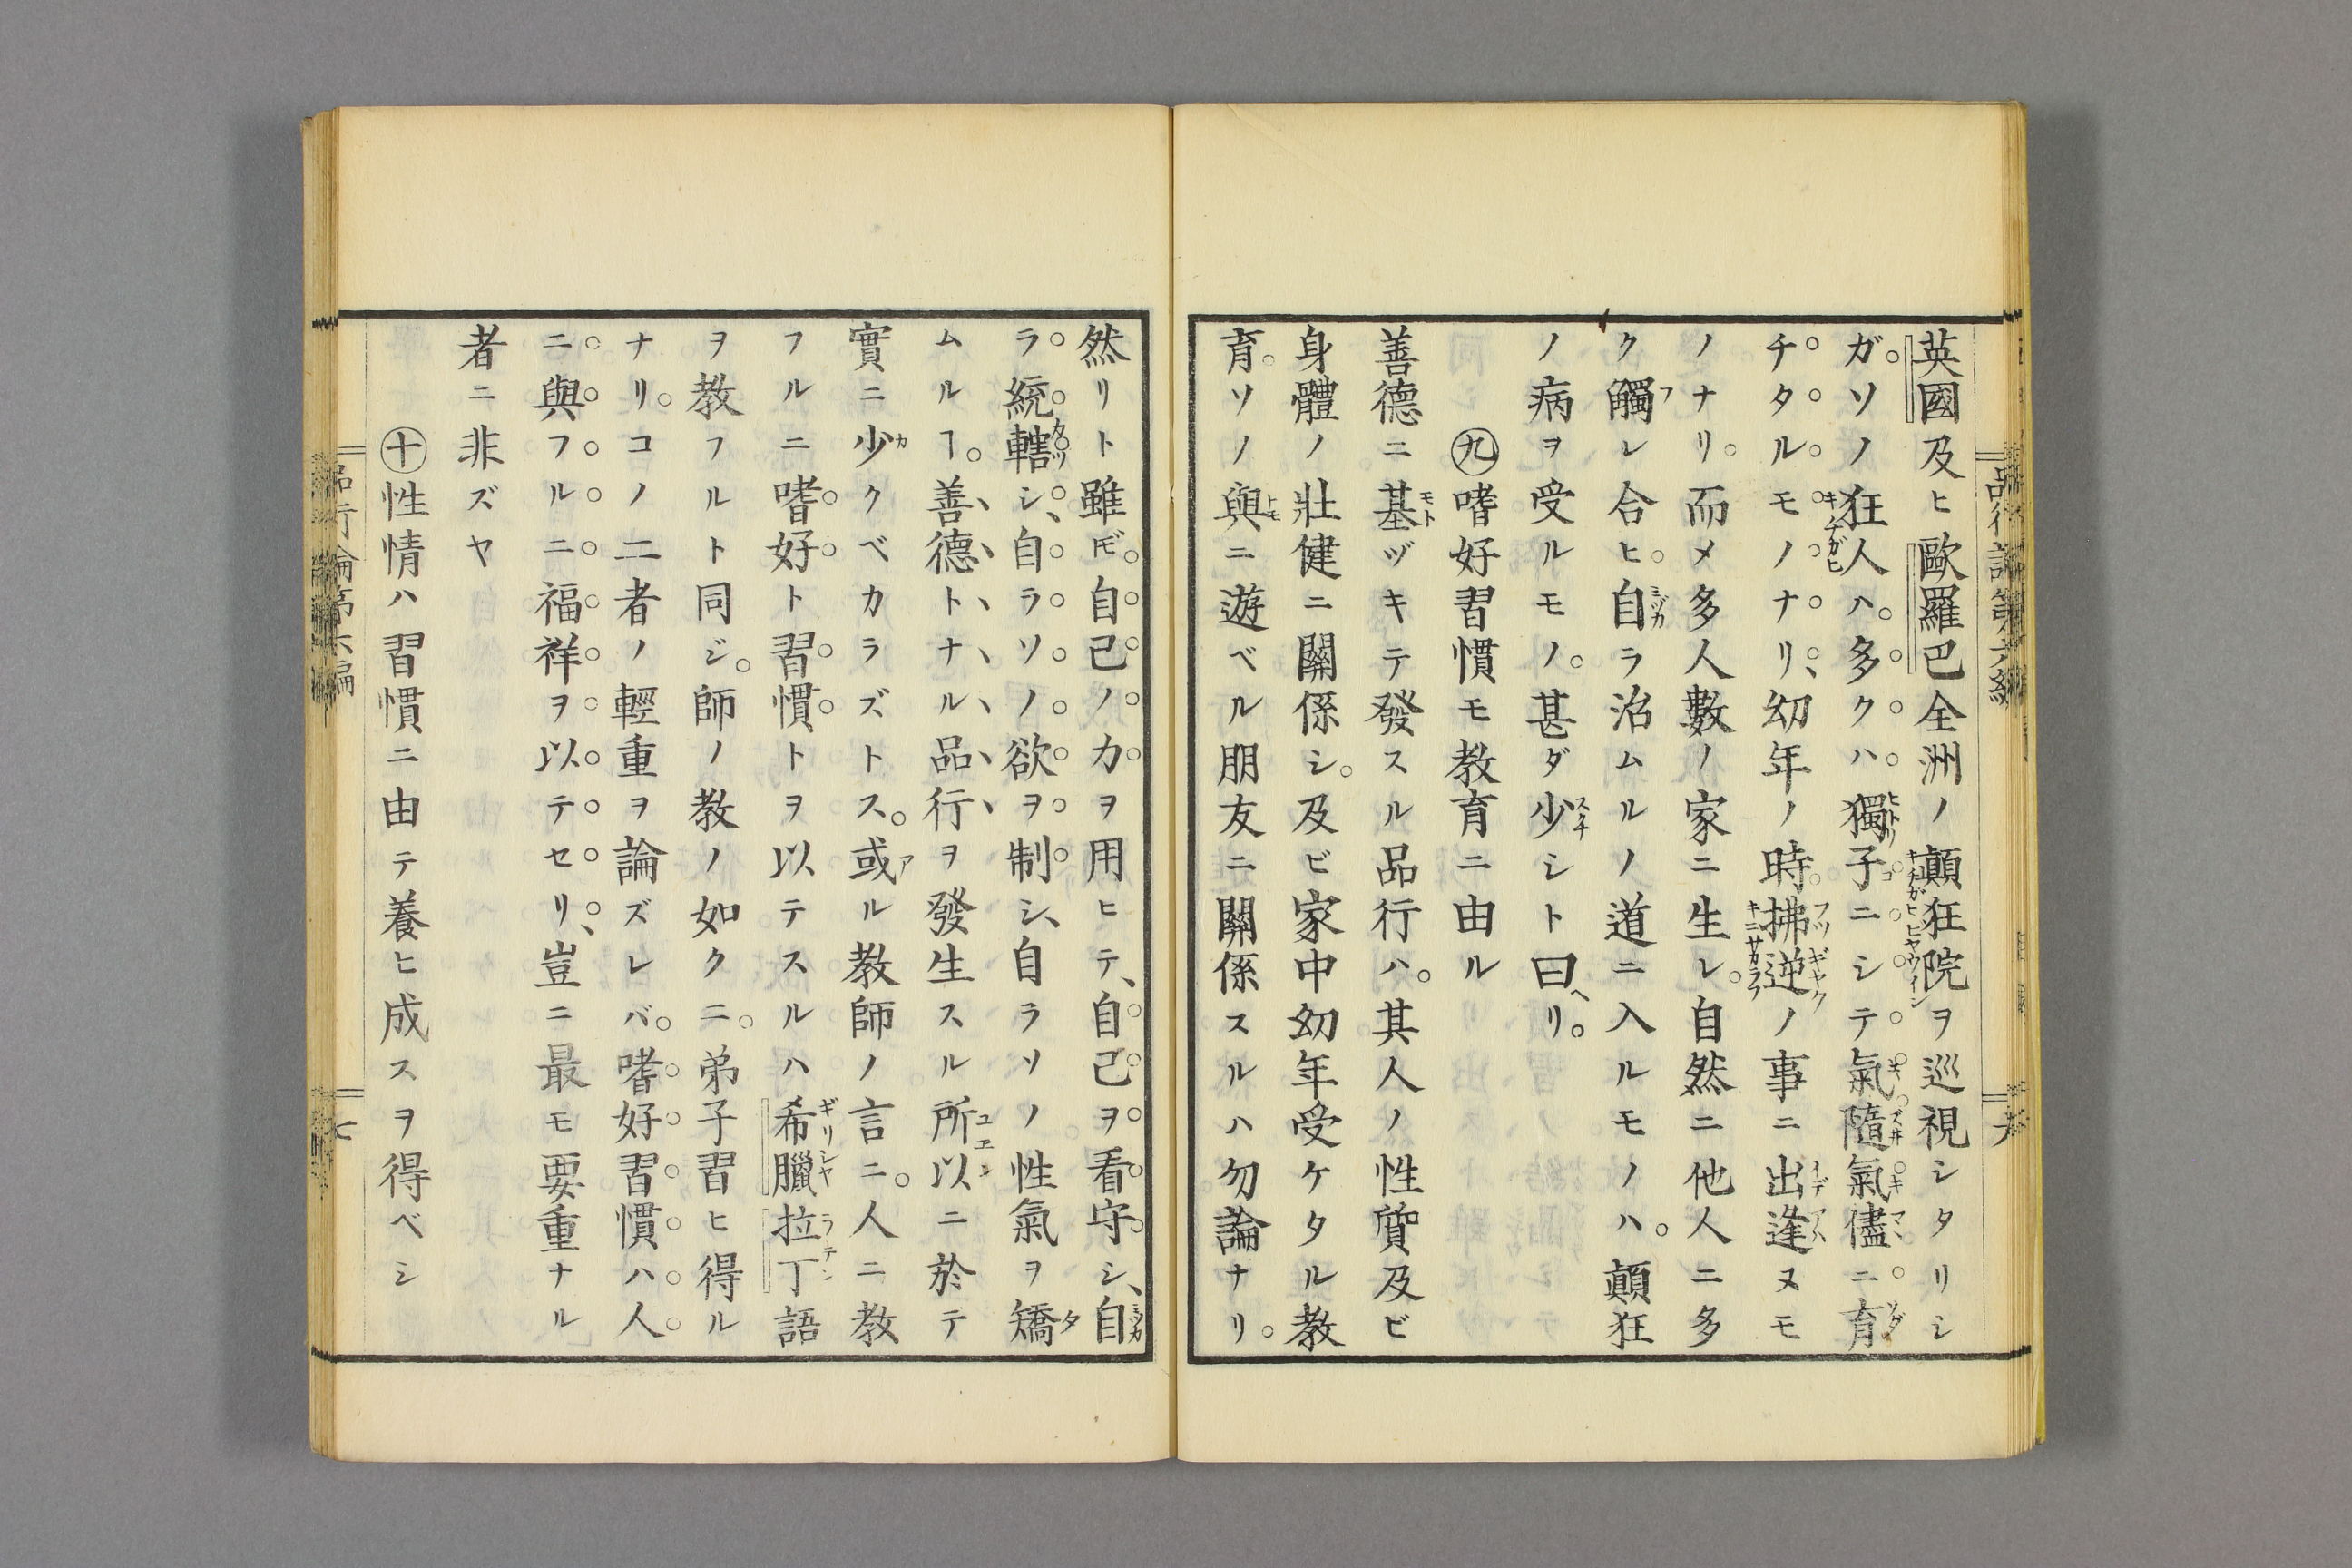 英國及ヒ歐羅巴全洲ノ顛狂院ヲ巡視シタリシ
ガ。ソノ狂人ハ。多クハ。獨子ニシテ氣隨氣儘ニ育
チタルモノナリ、幼年ノ時。拂逆ノ事ニ出逢ヌモ
ノナリ。而メ多人數ノ家ニ生レ。自然ニ他人ニ多
ク觸レ合ヒ。自ラ治ムルノ道ニ入ルモノハ。顛狂
ノ病ヲ受ルモノ。甚ダ少シト曰リ。
九嗜好習慣モ教育ニ由ル
善德ニ基ヅキテ發スル品行ハ。其人ノ性質及ビ
身體ノ壯健ニ關係シ。及ビ家中幼年受ケタル教
育。ソノ與ニ遊ベル朋友ニ關係スルハ勿論ナリ。
然リト雖𪜈。自己ノ力ヲ用ヒテ、自己ヲ看守シ、自
ラ統轄シ、自ラソノ欲ヲ制シ、自ラソノ性氣ヲ矯
ムルヿ。善德トナル品行ヲ發生スル所以ニ於テ
實ニ少クベカラズトス。或ル教師ノ言ニ。人ニ教
フルニ嗜好ト習慣トヲ以テスルハ希臘拉丁語
ヲ教フルト同ジ。師ノ教ノ如クニ。弟子習ヒ得ル
ナリ。コノ二者ノ輕重ヲ論ズレバ。嗜好習慣ハ人
ニ與フルニ福祥ヲ以テセリ、豈ニ最モ要重ナル
者ニ非ズヤ
十性情ハ習慣ニ由テ養ヒ成スヲ得ベシ
品行論第六編
七